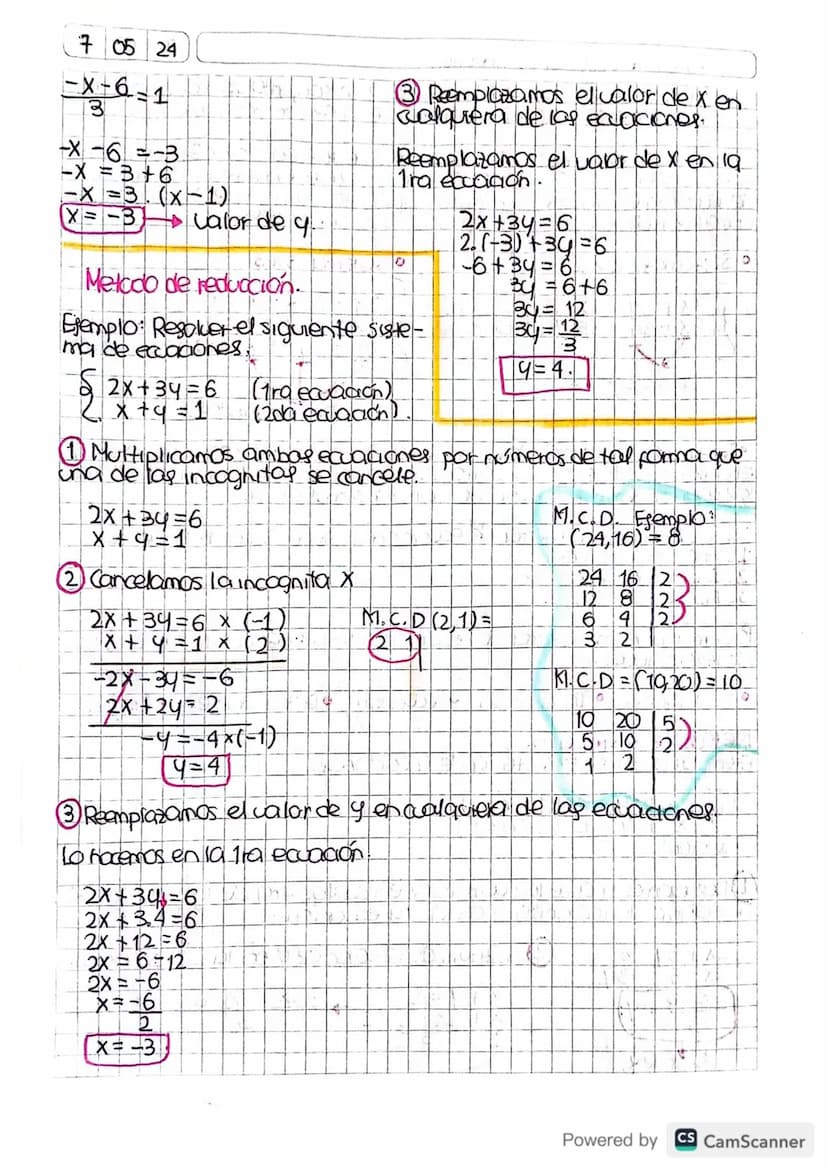 7 05 24
-x-6 = 1
3
-x -6 = -3
-x = 3+6
-x = 3.(x-1)
x = -3 → valor de y.
③ Reemplazamos el valor de x en
cualquiera de las ecuaciones.
Reemplazamos el valor de x en la
1ra ecuación.
2x+3y=6
2.(-3)+3y=6
-6+3y=6
3y = 6+6
3y = 12
3y = 12
3
y=4.
Metodo de reducción.
Ejemplo: Resolver el siguiente siste-
ma de ecuaciones.
{ 2x+3y=6 (1ra ecuación)
x+y=1 (2da ecuación).
① Multiplicamos ambas ecuaciones por números de tal forma que
una de las incognitas se cancele.
2x+3y=6
x+y=1
② Cancelamos la incognita x
2x+3y=6 x (-1)
x + y =1 x (2)
-2x-3y=-6
2x+2y= 2
-y=-4x(-1)
y=4
M.C.D (2,1)=
2 1
M.C.D. Ejemplo:
(24,16)=8
24 16 | 2
12 8 | 2
6 4 | 2
3 2 |
M.C.D = (10,20) = 10
10 20 | 5
5 10 | 2
1 2 |
③ Reemplazamos el valor de y en cualquiera de las ecuaciones.
Lo hacemos en la 1ra ecuación.
2x+3y=6
2x+3.4=6
2x+12=6
2x=6-12
2x=-6
x=-6
2
x=-3
Powered by CS CamScanner